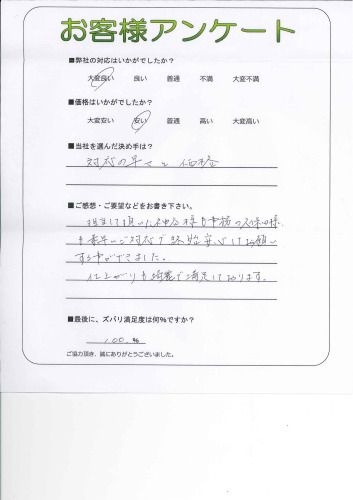 お客様アンケート
■弊社の対応はいかがでしたか？
大変良い 良い 普通 不満 大変不満
■価格はいかがでしたか？
大変安い 安い 普通 高い 大変高い
■当社を選んだ決め手は？
対応の早さと価格
■ご感想・ご要望などをお書き下さい。
担当して頂いた 様も事務の久保田様
も素早いご対応で 安心してお願い
する事ができました。
仕上がりも綺麗で満足しております。
■最後に、ズバリ満足度は何％ですか？
100 ％
ご協力頂き、誠にありがとうございました。